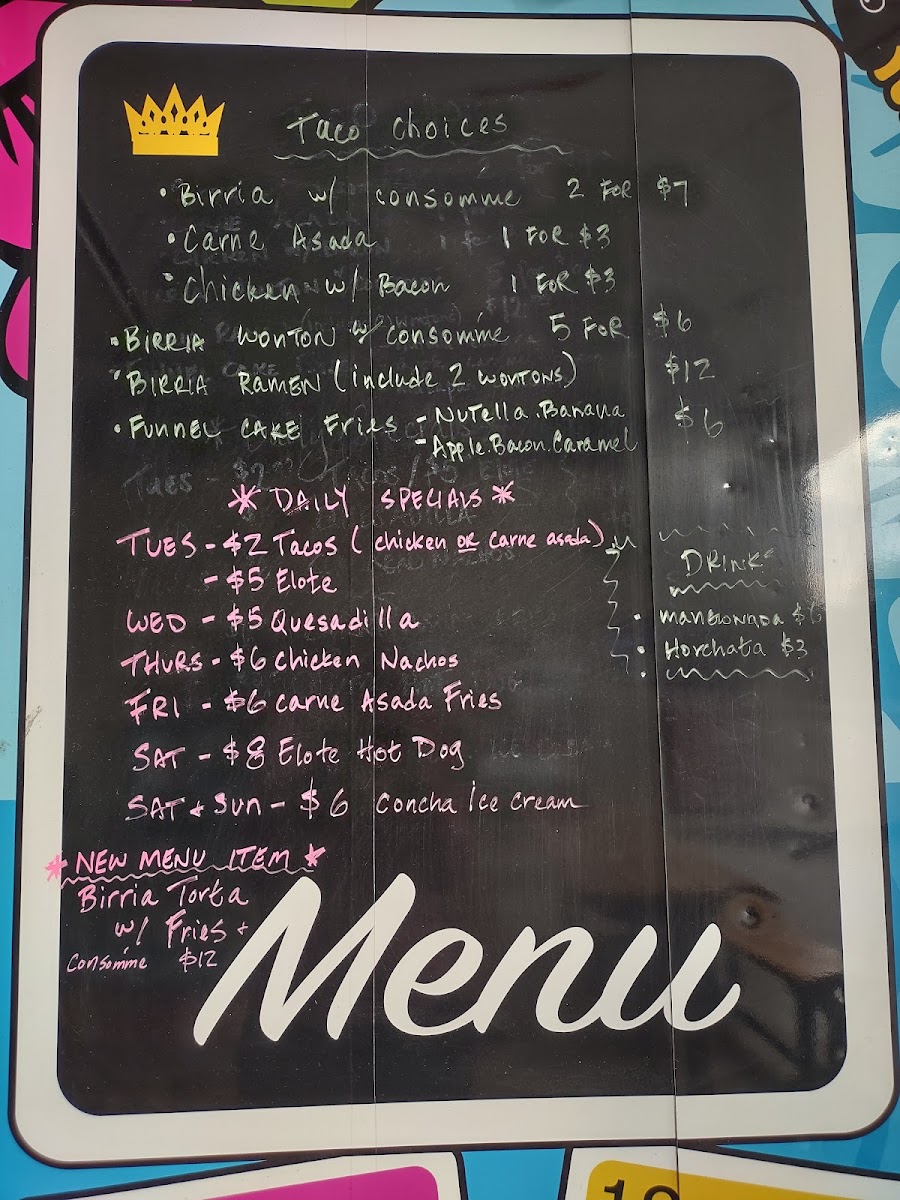 Taco Choices
• Birria w/ consommé 2 FOR $7
• Carne Asada 1 FOR $3
• Chicken w/ Bacon 1 FOR $3
• BIRRIA WONTON w/ consommé 5 FOR $6
• BIRRIA RAMEN (include 2 WONTONS) $12
• FUNNEL CAKE Fries - Nutella.Banana $6
- Apple.Bacon.Caramel
* DAILY SPECIALS *
TUES - $2 Tacos (chicken OR carne asada)
- $5 Elote
WED - $5 Quesadilla
THURS - $6 Chicken Nachos
FRI - $6 Carne Asada Fries
SAT - $8 Elote Hot Dog
SAT + Sun - $6 Concha Ice Cream
DRINKS
• mangonada $6
• Horchata $3
* NEW MENU ITEM *
Birria Torta
w/ Fries +
Consommé $12
Menu